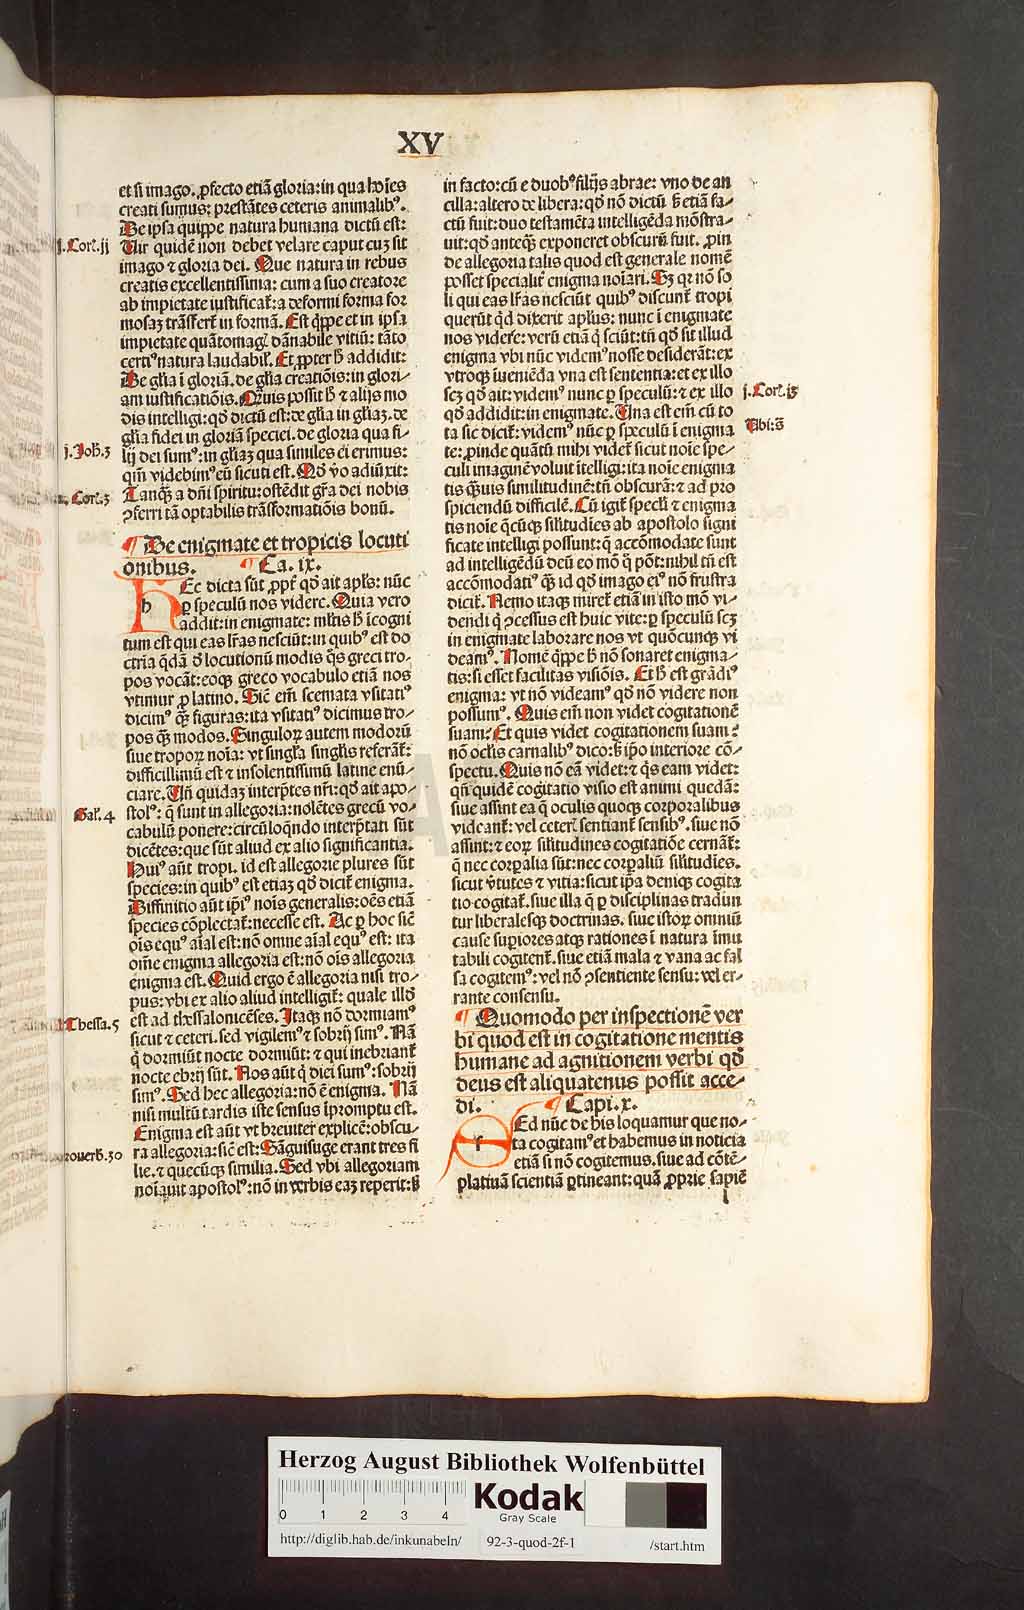 XV
et si imago. ꝓfecto etiã gloria: in qua hoı̃es
creati sumus: prestãtes ceteris animalibꝰ.
De ipsa quippe natura humana dictũ est:
j. Corĩ. jj
Uir quidẽ non debet velare caput cuꝫ sit
imago ⁊ gloria dei. Que natura in rebus
creatis excellentissima: cum a suo creatore
ab impietate iustificať: a deformi forma for
mosaꝫ trãsferť in formã. Est q̃ppe et in ipsa
impietate quãtomagĩ dãnabile vitiũ: tãto
certiꝰ natura laudabiľ. Et ꝓpter h̃ addidit:
De gľia ĩ gloriã. de gľia creatiõis: in glori⸗
am iustificatiõis. Quis possit h̃ ⁊ alijs mo
dis intelligi: qđ dictũ est: de gľia in gľiaꝫ. de
gľia fidei in gloriã speciei. de gloria qua fi⸗
j. Joh̃. 3
lij dei sumꝰ: in gľiaꝫ qua similes ei erimus:
qm̃ videbimꝰ eũ sicuti est. Qđ v̊o adiũxit:
Corĩ. 3
Tanq̃ꝫ a dñi spiritu: ostẽdit gr̃a dei nobis
ꝯferri tã optabilis trãsformatiõis bonũ.
¶ De enigmate et tropicis locuti
onibus. ¶ Ca. ix.
h Ec dicta sũt ꝓpť qđ ait apľs: nũc
ꝑ speculũ nos videre. Quia vero
addit: in enigmate: mľtis h̃ icogni
tum est qui eas lr̃as nesciũt: in quibꝰ est do
ctrĩa q̃dã đ locutionũ modis q̃s greci tro⸗
pos vocãt: eoqꝫ greco vocabulo etiã nos
vtimur ꝓ latino. Sic̃ em̃ scemata vsitatiꝰ
dicimꝰ q̃ꝫ figuras: ita vsitatiꝰ dicimus tro⸗
pos q̃ꝫ modos. Singuloꝝ autem modorũ
siue tropoꝝ noı̃a: vt singľa singľis referãť:
difficillimũ est ⁊ insolentissimũ latine enũ⸗
ciare. Uñ quidaꝫ interp̃tes nr̃i: qđ ait apo⸗
Gaľ. 4
stolꝰ: q̃ sunt in allegoria: nolẽtes grecũ vo⸗
cabulũ ponere: circũloq̃ndo interp̃tati sũt
dicẽtes: que sũt aliud ex alio significantia.
Huiꝰ aũt tropi. id est allegorie plures sũt
species: in quibꝰ est etiaꝫ qđ diciť enigma.
Diffinitio aũt ip̃iꝰ noı̃s generalis: oẽs etiã
species cõplectať: necesse est. Ac ꝑ hoc sic̃
oı̃s equꝰ aı̃al est: nõ omne aı̃al equꝰ est: ita
om̃e enigma allegoria est: nõ oı̃s allegoria
enigma est. Quid ergo ẽ allegoria nisi tro⸗
pus: vbi ex alio aliud intelligiť: quale illđ
Thessa. 5
est ad thessalonicẽses. Itaqꝫ nõ dormiamꝰ
sicut ⁊ ceteri. sed vigilemꝰ ⁊ sobrij simꝰ. Nã
q̃ dormiũt nocte dormiũt: ⁊ qui inebrianť
nocte ebrij sũt. Nos aũt q̃ diei sumꝰ: sobrij
simꝰ. Sed hec allegoria: nõ ẽ enigma. Nã
nisi multũ tardis iste sensus ĩpromptu est.
Enigma est aũt vt breuiter explicẽ: obscu⸗
rouerb. 30
ra allegoria: sic̃ est: Sãguisuge erant tres fi
lie. ⁊ quecũqꝫ similia. Sed vbi allegoriam
noı̃auit apostolꝰ: nõ in verbis eaꝫ reperit: ß
in facto: cũ e duobꝰ filijs abrae: vno de an
cilla: altero de libera: qđ nõ dictũ ß etiã fa⸗
ctũ fuit: duo testamẽta intelligẽda mõstra⸗
uit: qđ anteq̃ꝫ exponeret obscurũ fuit. ꝓin
de allegoria talis quod est generale nomẽ
posset specialiť enigma noı̃ari. Sꝫ qꝛ nõ so
li qui eas lr̃as nesciũt quibꝰ discunť tropi
querũt qđ dixerit apľus: nunc ĩ enigmate
nos videre: verũ etiã q̃ sciũt: tñ qđ sit illud
enigma vbi nũc videmꝰ nosse desiderãt: ex
vtroqꝫ ĩueniẽda vna est sententia: et ex illo
j. Corĩ. ı3
scꝫ qđ ait: videmꝰ nunc ꝑ speculũ: ⁊ ex illo
qđ addidit: in enigmate. Una est em̃ cũ to
Ubi: s̃
ta sic diciť: videmꝰ nũc ꝑ speculũ ĩ enigma
te: ꝓinde quãtũ mihi videť sicut noı̃e spe⸗
culi imaginẽ voluit ĩtelligi: ita noı̃e enigma
tis q̃ꝫuis similitudinẽ: tñ obscurã: ⁊ ad pro
spiciendũ difficilẽ. Cũ igiť speclĩ ⁊ enigma
tis noı̃e q̃cũqꝫ siľitudĩes ab apostolo signi
ficate intelligi possunt: q̃ accõmodate sunt
ad intelligẽdũ deũ eo mõ q̃ põt: nihil tñ est
accõmodatiꝰ q̃ꝫ id qđ imago eiꝰ nõ frustra
diciť. Nemo itaqꝫ mireť etiã in isto mõ vi⸗
dendi q̃ ꝯcessus est huic vite: ꝑ speculũ scꝫ
in enigmate laborare nos vt quõcunqꝫ vi
deamꝰ. Nomẽ q̃ppe h̃ nõ sonaret enigma⸗
tis: si esset facilitas visiõis. Et h̃ est grãdiꝰ
enigma: vt nõ videamꝰ qđ nõ videre non
possumꝰ. Quis em̃ non videt cogitationẽ
suam? Et quis videt cogitationem suam?
nõ ocľis carnalibꝰ dico: ß ip̃o interiore cõ⸗
spectu. Quis nõ eã videt: ⁊ q̃s eam videt:
qñ quidẽ cogitatio visio est animi quedã:
siue assint ea q̃ oculis quoqꝫ corporalibus
videanť: vel ceterĩ sentianť sensibꝰ. siue nõ
assint: ⁊ eoꝝ siľitudines cogitatiõe cernãť:
q̃ nec corꝑalia sũt: nec corꝑaliũ siľitudĩes.
sicut v̓tutes ⁊ vitia: sicut ip̃a deniqꝫ cogita
tio cogitať. siue illa q̃ ꝑ disciplinas tradun
tur liberalesqꝫ doctrinas. siue istoꝝ omniũ
cause suꝑiores atqꝫ rationes ĩ natura ĩmu
tabili cogitenť. siue etiã mala ⁊ vana ac fal
sa cogitemꝰ: vel nõ ꝯsentiente sensu: vel er⸗
rante consensu.
¶ Quomodo per inspectionẽ ver
bi quod est in cogitatione mentis
humane ad agnitionem verbi qđ
deus est aliquatenus possit acce⸗
di. ¶ Capi. x.
f Ed nũc de his loquamur que no⸗
ta cogitamꝰ et habemus in noticia
etiã si nõ cogitemus. siue ad cõtẽ⸗
platiuã scientiã ꝑtineant: quã ꝓprie sapiẽ
Herzog August Bibliothek Wolfenbüttel
0 1 2 3 4
Kodak
Gray Scale
http://diglib.hab.de/inkunabeln/ 92-3-quod-2f-1 /start.htm